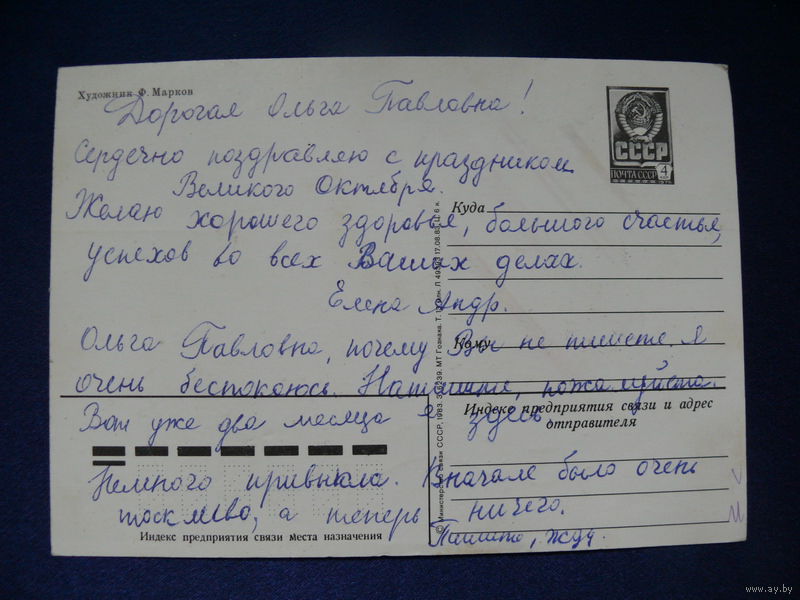 Художник Ф. Марков
Дорогая Ольга Павловна!
Сердечно поздравляю с праздником
Великого Октября.
Желаю хорошего здоровья, большого счастья,
успехов во всех Ваших делах.
Елена Андр.
Ольга Павловна, почему Вы не пишете. Я
очень беспокоюсь. Напишите, пожалуйста.
Вот уже два месяца я здесь.
Немного привыкла. Вначале было очень
тоскливо, а теперь ничего.
Пишите, жду.
СССР
ПОЧТА СССР 4
Куда
Кому
Индекс предприятия связи и адрес
отправителя
Индекс предприятия связи места назначения
© Министерство связи СССР, 1983. МТ Гознака. 17.08.83. Ц. 6 к.
www.ay.by